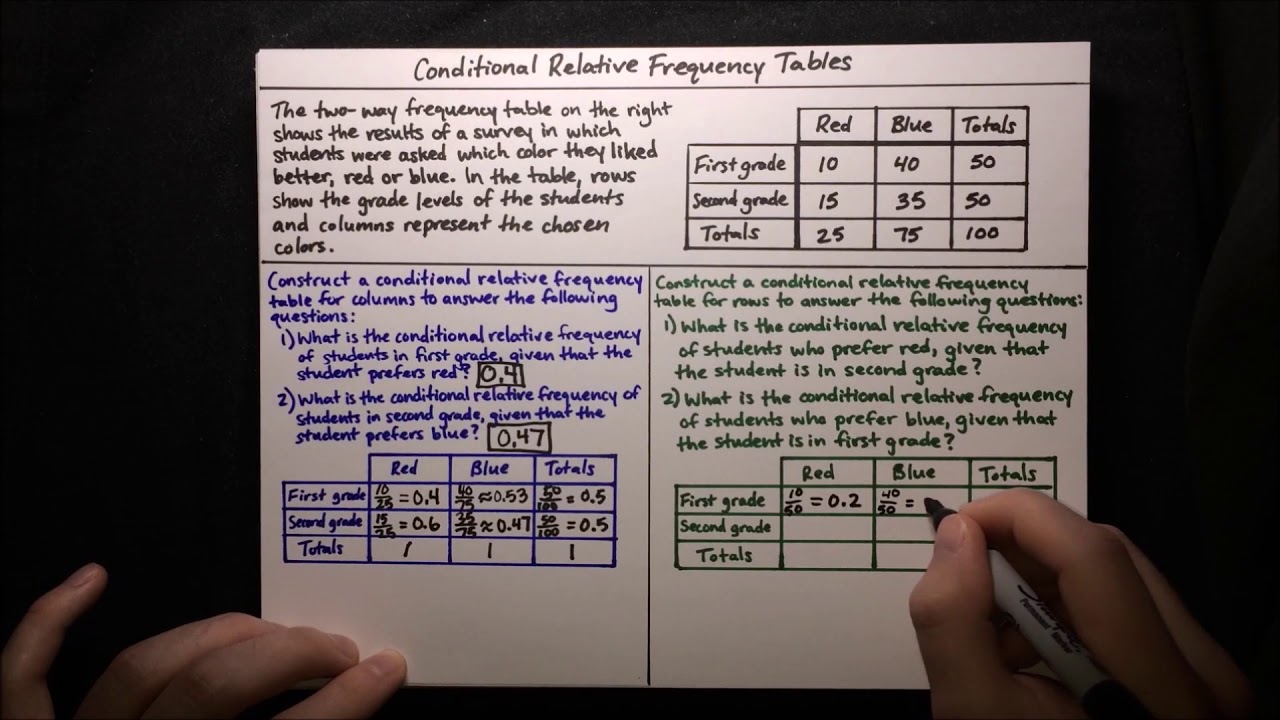 Conditional Relative Frequency Tables
The two-way frequency table on the right
shows the results of a survey in which
students were asked which color they liked
better, red or blue. In the table, rows
show the grade levels of the students
and columns represent the chosen
colors.
Red Blue Totals
First grade 10 40 50
Second grade 15 35 50
Totals 25 75 100
Construct a conditional relative frequency
table for columns to answer the following
questions:
1) What is the conditional relative frequency
of students in first grade, given that the
student prefers red? 0.4
2) What is the conditional relative frequency of
students in second grade, given that the
student prefers blue? 0.47
Red Blue Totals
First grade 10/25 = 0.4 40/75 ≈ 0.53 50/100 = 0.5
Second grade 15/25 = 0.6 35/75 ≈ 0.47 50/100 = 0.5
Totals 1 1 1
Construct a conditional relative frequency
table for rows to answer the following questions:
1) What is the conditional relative frequency
of students who prefer red, given that
the student is in second grade?
2) What is the conditional relative frequency
of students who prefer blue, given that
the student is in first grade?
Red Blue Totals
First grade 10/50 = 0.2 40/50 =
Second grade
Totals